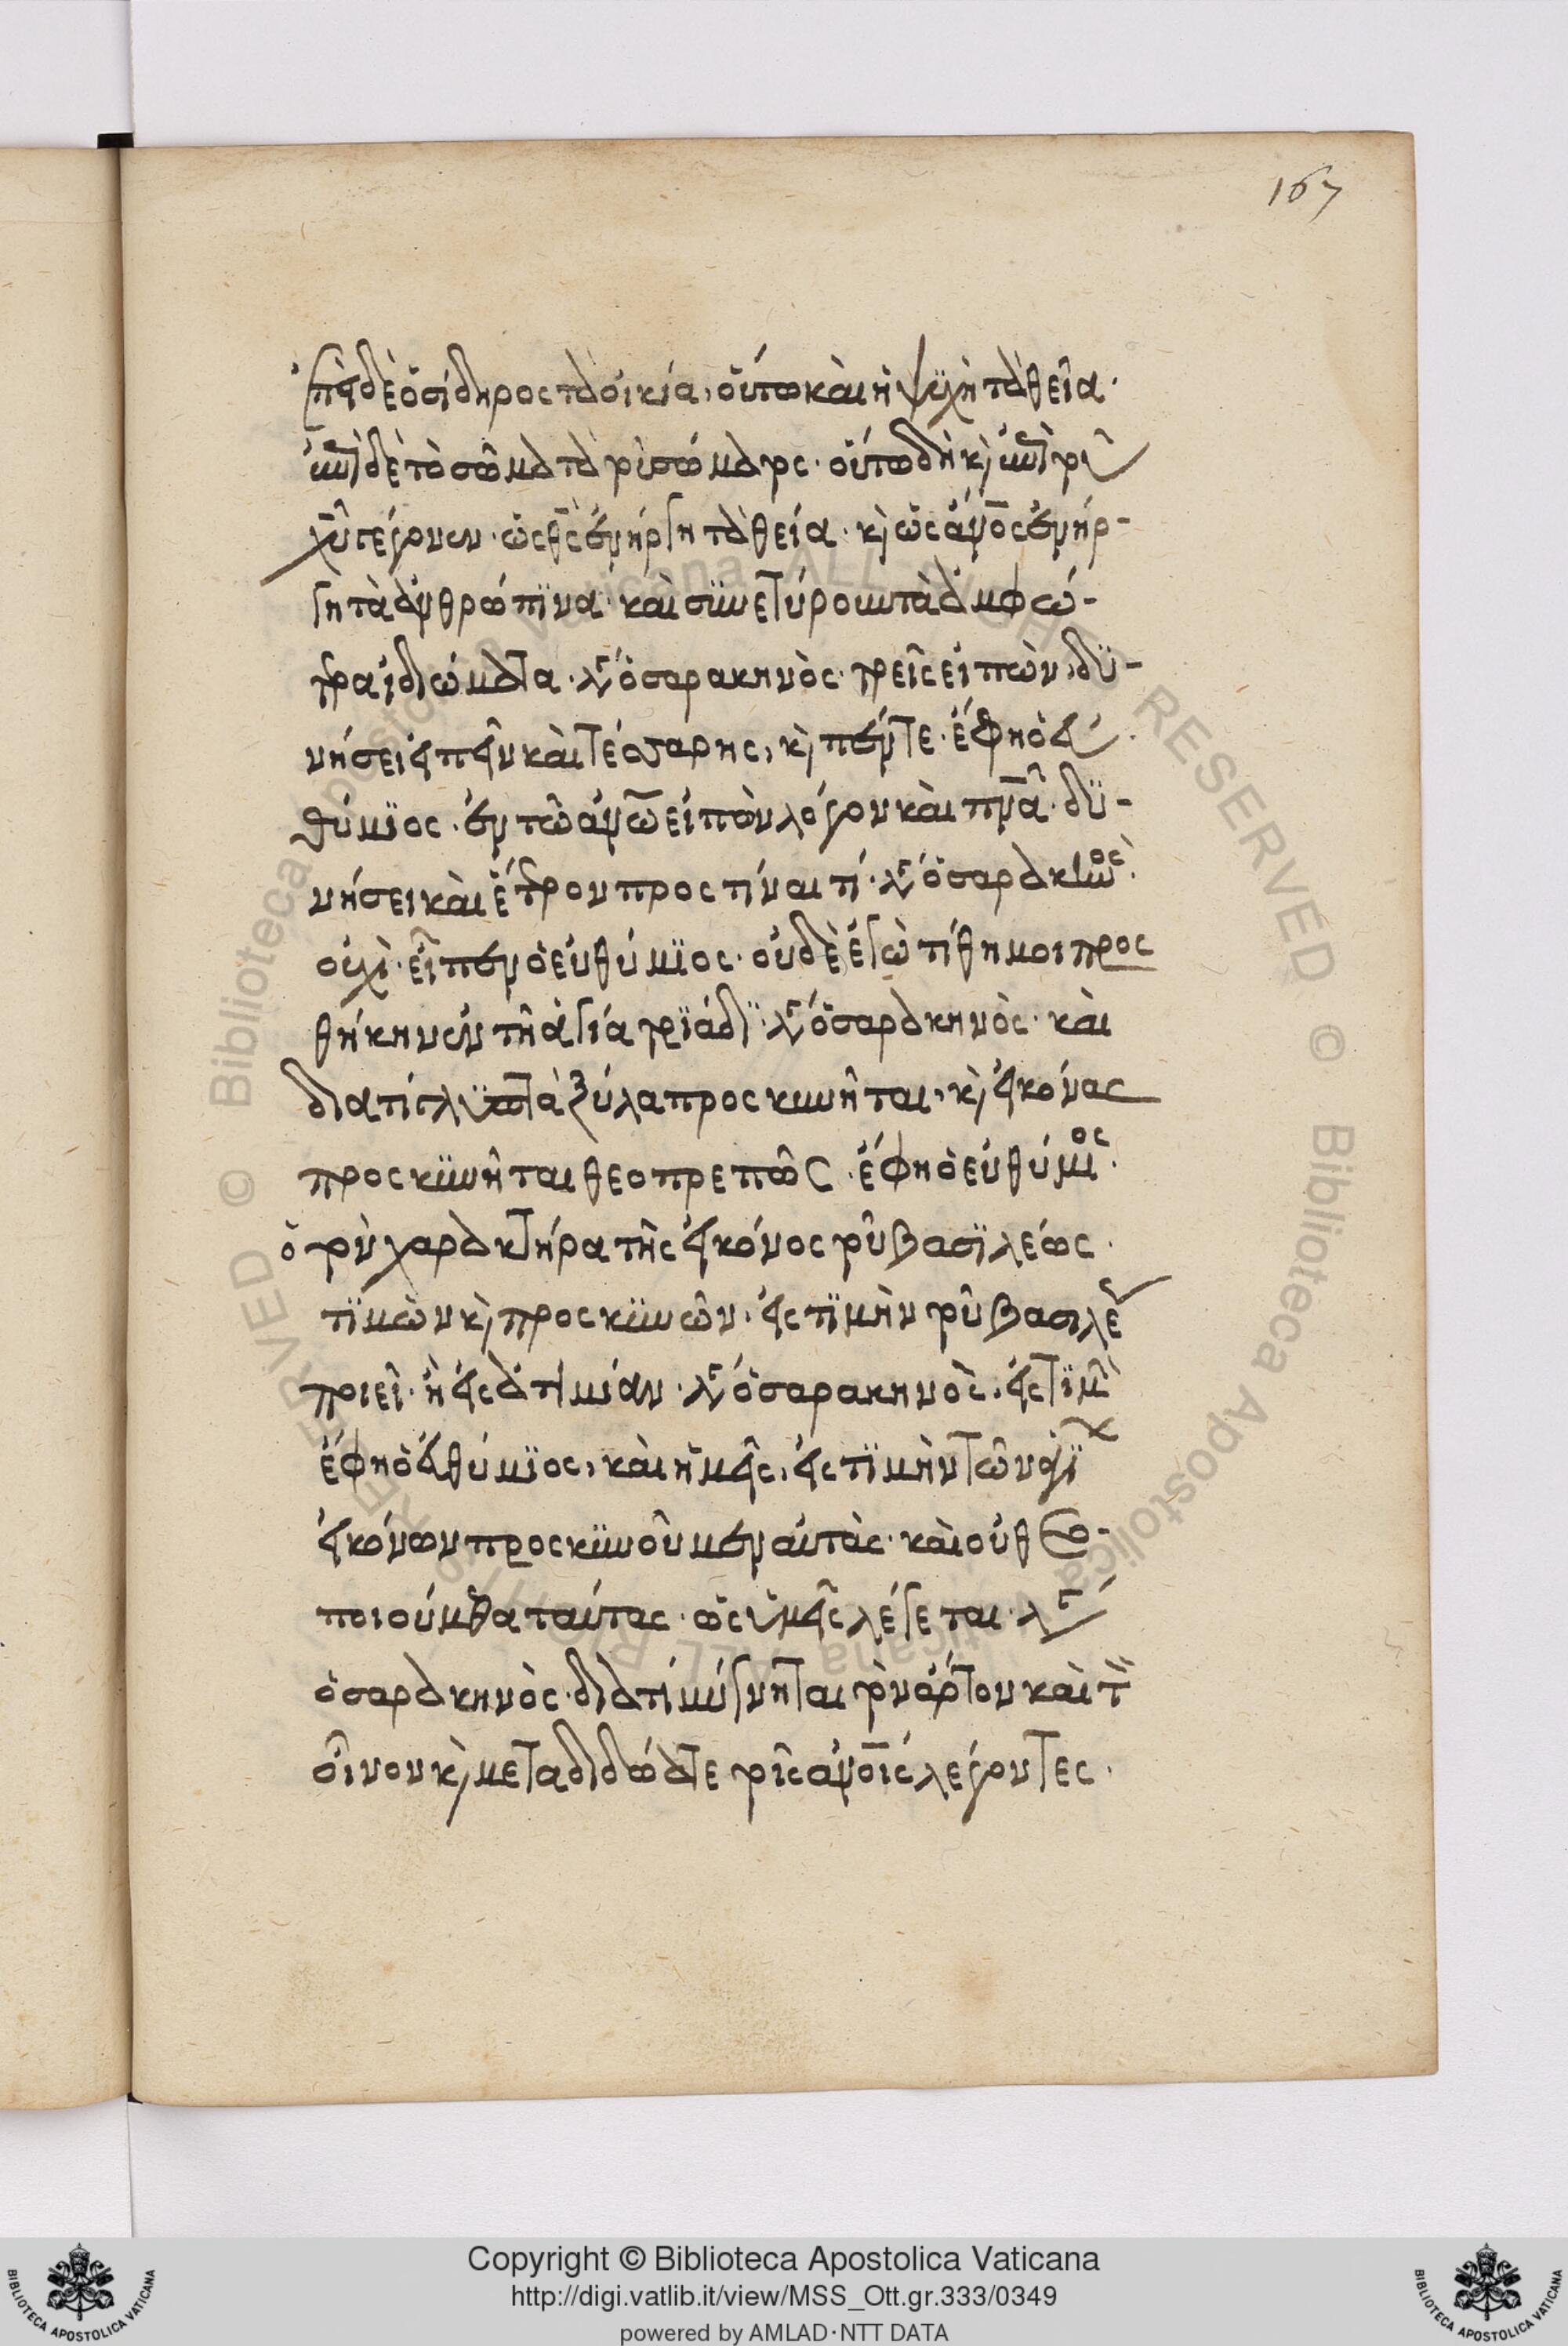 167
ποιεῖ δὲ ὁ σίδηρος τὰ οἰκία, οὕτω καὶ ἡ ψυχὴ τὰ θεῖα·
δὲ τὸ σῶμα τὰ τοῦ σώματος· οὕτω δὴ κ(αὶ) ἐπὶ τοῦ
χ(ριστο)ῦ γέγονεν· ὡς θ(εὸ)ς ἐνήργη τὰ θεία· κ(αὶ) ὡς ἄν(θρωπ)ος ἐνήρ-
γη τὰ ἀνθρώπινα· καὶ συνέτυρον τὰ ἀμφώ-
τερα ἰδιώματα· λέγ(ει) ὁ σαρακηνὸς· τρεῖς εἰπὼν, δυ-
νήσει εἰπεῖν καὶ τέσσαρης, κ(αὶ) πέντε· ἔφη ὁ εὐ-
θύμιος· ἐν τῶ ἀν(θρώπ)ω εἰπὼν λόγον καὶ πν(εῦμ)α· δυ-
νήσει καὶ ἕτερον προστίναι τί· λέγ(ει) ὁ σαρακηνὸς·
οὐχὶ· εἶπεν ὁ εὐθύμιος· οὐδὲ ἐγὼ τίθημοι προς
θήκην ἐν τῆ ἁγία τριάδι· λέγ(ει) ὁ σαρακηνὸς· καὶ
διατί τὰ ξύλα προσκυνῆται, κ(αὶ) εἰκόνας
προσκυνῆται θεοπρεπῶς· ἔφη ὁ εὐθύμιος·
ὁ τὸν χαρακτήρα τῆς εἰκόνος τοῦ βασιλέως·
τιμῶν κ(αὶ) προσκυνῶν· εἰς τιμὴν τοῦ βασιλέ(ως)
ποιεῖ· ἢ εἰς ἀτιμίαν· λέγ(ει) ὁ σαρακηνὸς, εἰς τιμὴ(ν)
ἔφη ὁ εὐθύμιος, καὶ ἡμεῖς, εἰς τιμὴν τῶν ἁγί(ων)
εἰκόνων προσκυνοῦμεν αὐτὰς· καὶ οὐ θεο-
ποιούμεθα ταύτας· ὡς ὑμεῖς λέγεται· λέγ(ει)
ὁ σαρακηνὸς· διατί μύγνηται τὸν ἄρτον καὶ τὸν
οἶνον κ(αὶ) μεταδιδώατε τοῖς ἀν(θρώπ)οις λέγοντες·
Copyright © Biblioteca Apostolica Vaticana
http://digi.vatlib.it/view/MSS_Ott.gr.333/0349
powered by AMLAD·NTT DATA